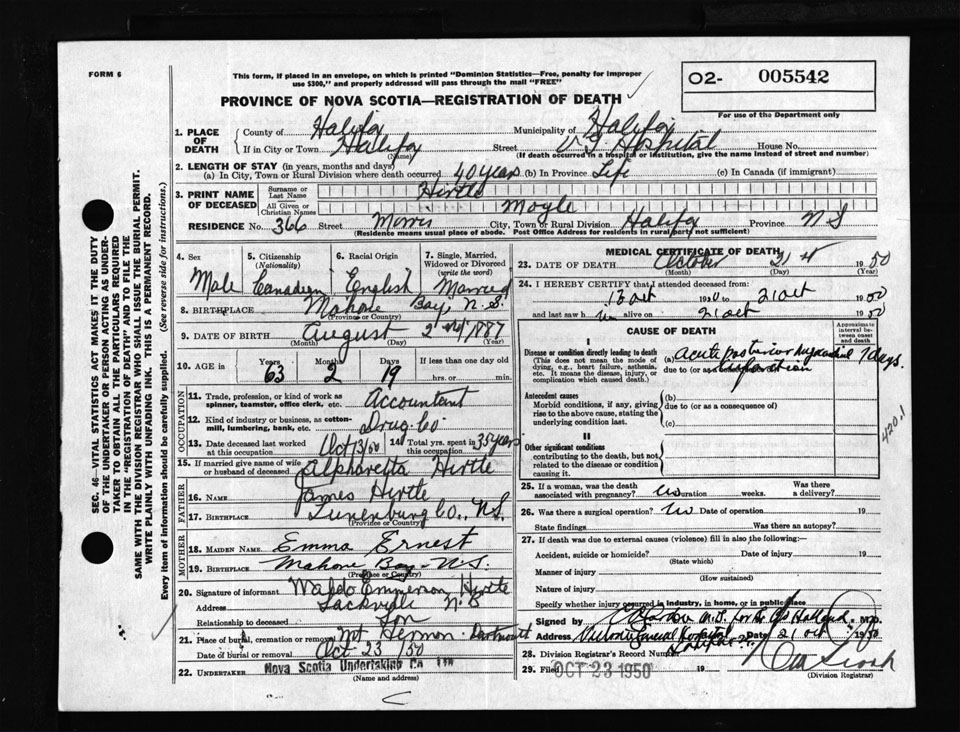 FORM 6
This form, if placed in an envelope, on which is printed "Dominion Statistics—Free, penalty for improper
use $300," and properly addressed will pass through the mail "FREE"
O2- 005542
For use of the Department only
PROVINCE OF NOVA SCOTIA—REGISTRATION OF DEATH
1. PLACE OF DEATH
County of Halifax Municipality of Halifax
If in City or Town Halifax (Name) Street V G Hospital House No.
(If death occurred in a hospital or institution, give the name instead of street and number)
2. LENGTH OF STAY (in years, months and days)
(a) In City, Town or Rural Division where death occurred 40 years (b) In Province Life (c) In Canada (if immigrant)
3. PRINT NAME OF DECEASED
Surname or Last Name Hirtle
All Given or Christian Names Moyle
RESIDENCE No. 366 Street Morris City, Town or Rural Division Halifax Province N S
(Residence means usual place of abode. Post Office Address for residents in rural parts not sufficient)
SEC. 46—VITAL STATISTICS ACT MAKES IT THE DUTY
OF THE UNDERTAKER OR PERSON ACTING AS UNDER-
TAKER TO OBTAIN ALL THE PARTICULARS REQUIRED
IN THE "REGISTRATION OF DEATH" AND TO FILE THE
SAME WITH THE DIVISION REGISTRAR WHO SHALL ISSUE THE BURIAL PERMIT.
WRITE PLAINLY WITH UNFADING INK. THIS IS A PERMANENT RECORD.
Every item of information should be carefully supplied. (See reverse side for instructions.)
4. Sex Male
5. Citizenship (Nationality) Canadian
6. Racial Origin English
7. Single, Married, Widowed or Divorced (write the word) Married
8. BIRTHPLACE Mahone Bay, N.S.
(Province or Country)
9. DATE OF BIRTH August 2nd 1887
(Month) (Day) (Year)
10. AGE in Years 63 Months 2 Days 19 If less than one day old
hrs. or min.
OCCUPATION
11. Trade, profession, or kind of work as
spinner, teamster, office clerk, etc. Accountant
12. Kind of industry or business, as cotton-
mill, lumbering, bank, etc. Drug Co
13. Date deceased last worked
at this occupation Oct 13/50
14. Total yrs. spent in
this occupation 35 years
15. If married give name of wife
or husband of deceased Alpharetta Hirtle
FATHER
16. NAME James Hirtle
17. BIRTHPLACE Lunenburg Co., N.S.
(Province or Country)
MOTHER
18. MAIDEN NAME Emma Ernest
19. BIRTHPLACE Mahone Bay - N.S.
(Province or Country)
20. Signature of informant Waldo Emmerson Hirtle
Address Sackville N.B
Relationship to deceased Son
21. Place of burial, cremation or removal Mt Hermon Dartmouth
Date of burial or removal Oct 23 /50
22. UNDERTAKER Nova Scotia Undertaking Co Ltd
(Name and address)
MEDICAL CERTIFICATE OF DEATH
23. DATE OF DEATH October 21st 1950
(Month) (Day) (Year)
24. I HEREBY CERTIFY that I attended deceased from:
13 oct 1950 to 21 oct 1950
and last saw h im alive on 21 oct 1950
CAUSE OF DEATH
Approximate interval between onset and death
I
Disease or condition directly leading to death
(This does not mean the mode of
dying, e.g., heart failure, asthenia,
etc. It means the disease, injury, or
complication which caused death.)
(a) Acute posterior myocardial 7 days.
due to (or as a consequence of)
Antecedent causes
Morbid conditions, if any, giving
rise to the above cause, stating the
underlying condition last.
(b)
due to (or as a consequence of)
(c)
420.1
II
Other significant conditions
contributing to the death, but not
related to the disease or condition
causing it.
25. If a woman, was the death
associated with pregnancy? no Duration weeks. Was there
a delivery?
26. Was there a surgical operation? no Date of operation 19
State findings Was there an autopsy?
27. If death was due to external causes (violence) fill in also the following:
Accident, suicide or homicide? Date of injury 19
(State which)
Manner of injury
(How sustained)
Nature of injury
Specify whether injury occurred in industry, in home, or in public place
Signed by M.D.
Address Victoria General Hospital Date 21 oct 1950
Halifax
28. Division Registrar's Record Number
29. Filed OCT 23 1950 19
(Division Registrar)